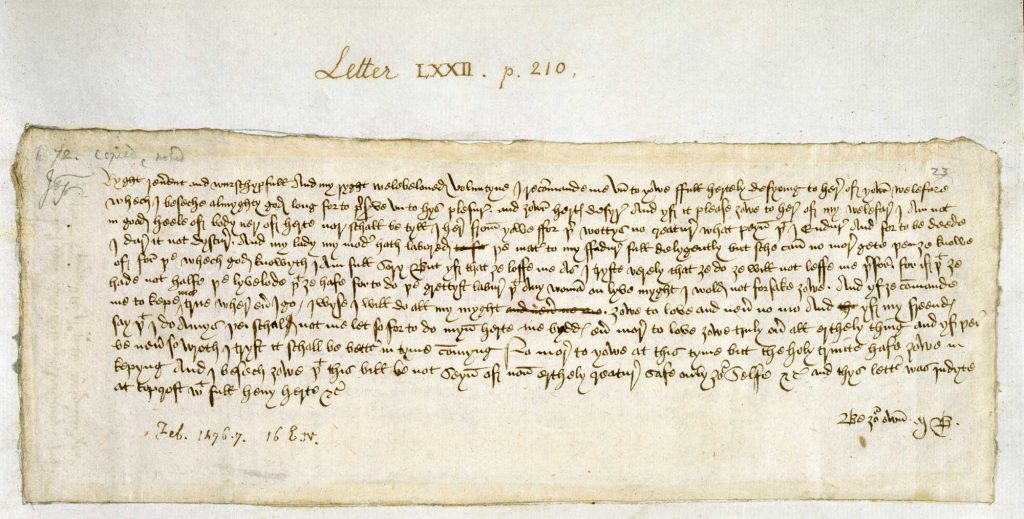 Letter LXXII. p. 210.
72. copied & noted
23
Ryght reuerent and wurschypfull And my ryght welebeloued Voluntyne I recomande me vn to yowe full hertely desyring to here of yowr welefare
whech I beseche almyghty god long for to preserve vn to hys plesure and ȝowr hertys desyre And yf it please ȝowe to here of my welefare I am not
in good heele of body ner of herte nor schall be tyll I here from yowe ffor þer wottys no creature what peyn þat I endure And for to be deede
I dare it not dyscure And my lady my moder hath labored þe mater to my ffadure full delygently but sche can no more gete þen ȝe knowe
of for þe whech god knowyth I am full sory But yf that ȝe loffe me As I tryste verely that ȝe do ȝe will not leffe me þerfor for if þat ȝe
hade not halfe þe lyvelode þat ȝe hafe for to do þe grettyst labure þat Any woman on lyve myght I wold not forsake ȝowe And yf ȝe comande
me to kepe me true where euer I go I wyse I will do all my myght ȝowe to love and neuer no mo And yf my freendys
say þat I do Amys þei schal not me let so for to do myn herte me byddys euer more to love ȝowe truly ouer all erthely thing and yf þei
be neuer so wroth I tryst it schall be bettur in tyme comyng No more to yowe at this tyme but the holy trinite hafe ȝowe in
kepyng And I besech ȝowe þat this bill be not seyn of non erthely creature safe only ȝour selfe &c and thys lettur was indyte
at topcroft wt full heuy herte &c
Be ȝour own M B.
Feb. 1476-7. 16 E. IV.